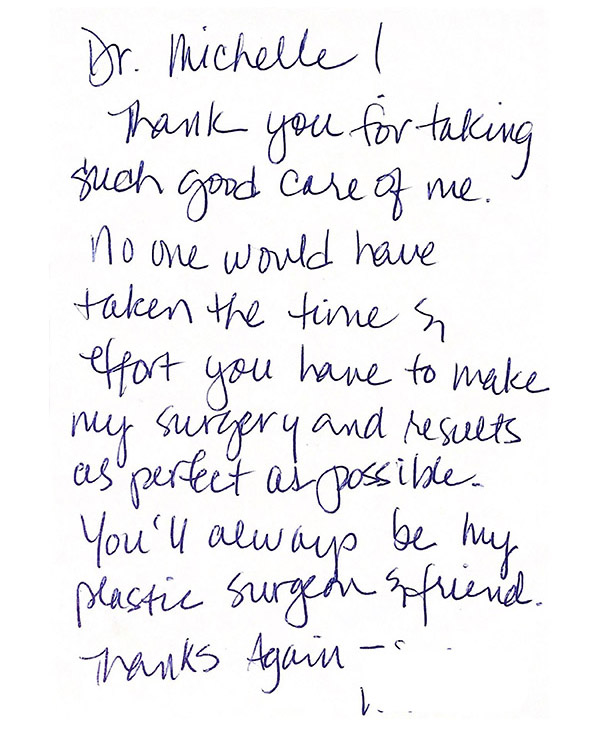 Dr. Michelle!
Thank you for taking
such good care of me.
No one would have
taken the time &
effort you have to make
my surgery and results
as perfect as possible.
You'll always be my
plastic surgeon & friend.
Thanks Again –